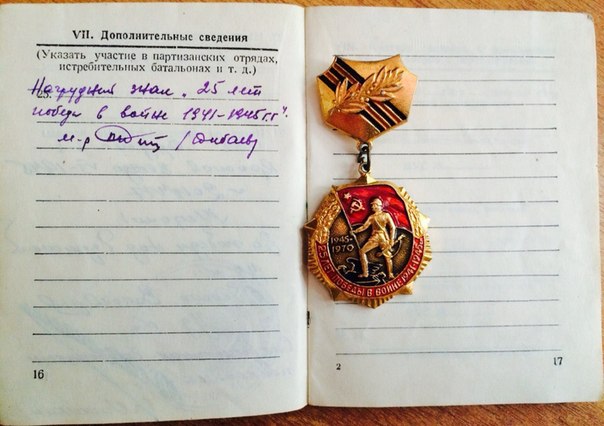 VII. Дополнительные сведения
(Указать участие в партизанских отрядах,
истребительных батальонах и т. д.)
Нагрудный знак „25 лет
победы в войне 1941-1945 гг".
м-р
16
1945-
1970
25 ЛЕТ ПОБЕДЫ В ВОЙНЕ 1941-1945
2
17